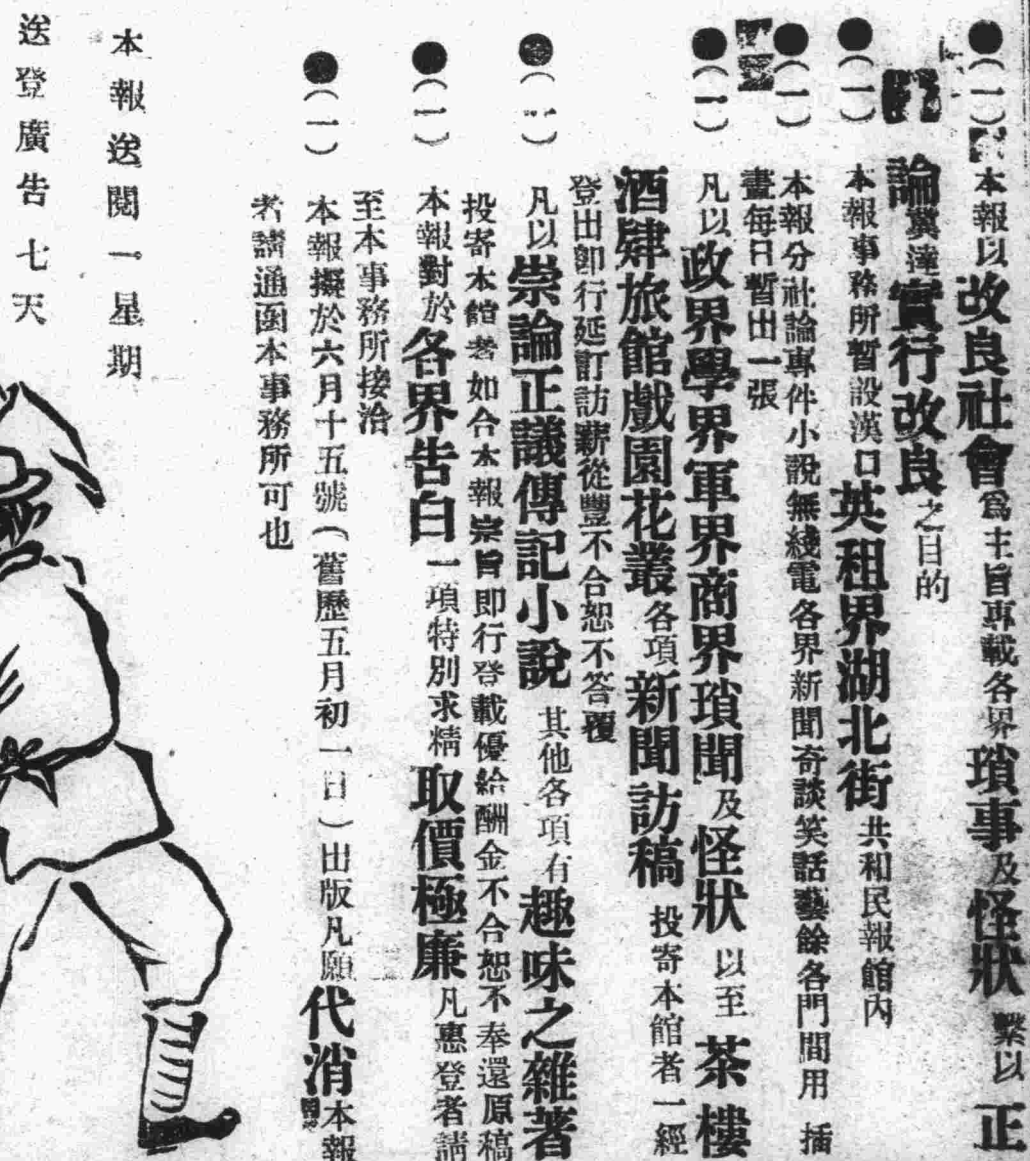 ●（一）本報以改良社會爲主旨專載各界瑣事及怪狀繫以正
論冀達實行改良之目的
●（一）本報事務所暫設漢口英租界湖北街共和民報館內
●（一）本報分社論專件小說無綫電各界新聞奇談笑話藝餘各門間用插
畫每日暫出一張
●（一）凡以政界學界軍界商界瑣聞及怪狀以至茶樓
酒肆旅館戲園花叢各項新聞訪稿投寄本館者一經
登出卽行延訂訪薪從豐不合恕不答覆
●（一）凡以崇論正議傳記小說其他各項有趣味之雜著
投寄本館者如合本報宗旨即行登載優給酬金不合恕不奉還原稿
●（一）本報對於各界告白一項特別求精取價極廉凡惠登者請
至本事務所接洽
●（一）本報擬於六月十五號（舊歷五月初一日）出版凡願代消本報
者請通函本事務所可也
本報送閱一星期
送登廣告七天